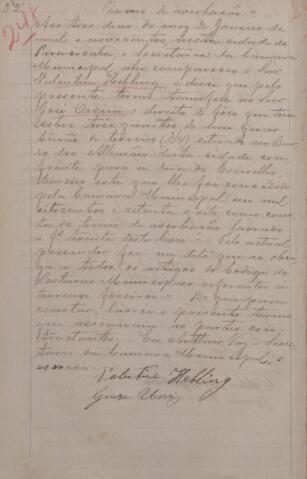 32
Termo de averbação
Aos tres dias do mez de Janeiro, de
mil e novecentos, nesta cidade de
Piracicaba, e Secretaria da Camara
Municipal, ahi compareceu o Snr.
Valentim Hebling, e disse que pelo
presente termo transfere ao Snr.
José o direito de foro que tem
sobre tres quartos de uma
de terreno (3/4) situado no Bair-
ro dos Allemães desta cidade, com
frente para a rua do Conselho
terreno este que lhe foi concedido
pela Camara Municipal, em mil
oitocentos e oitenta e oito, como cons-
ta do termo de averbação lavrado
a fl trinta deste livro. Pelo actual
possuidor foi me dito que se obri-
ga a todos os artigos do Codigo de
Posturas Municipaes referentes a
terrenos foreiros. E para
constar, lavrei o presente termo
que assignam as partes con-
tractantes. Eu, Secre-
tario da Camara Municipal, o

Valentim Hebling